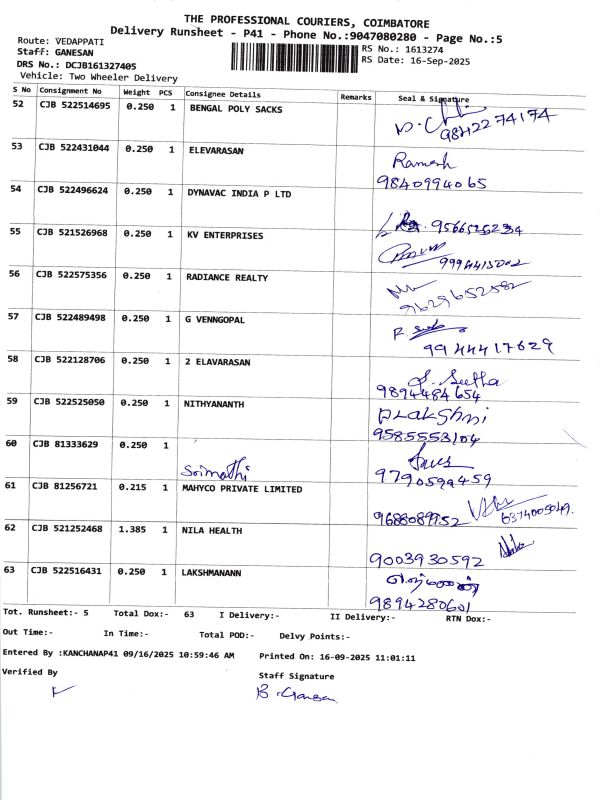 THE PROFESSIONAL COURIERS, COIMBATORE
Delivery Runsheet - P41 - Phone No.:9047080280 - Page No.:5
Route: VEDAPPATI
RS No.: 1613274
Staff: GANESAN
RS Date: 16-Sep-2025
DRS No.: DCJB161327405
Vehicle: Two Wheeler Delivery
S No Consignment No Weight PCS Consignee Details Remarks Seal & Signature
52 CJB 522514695 0.250 1 BENGAL POLY SACKS
9842274174
53 CJB 522431044 0.250 1 ELEVARASAN Ramesh
9840994065
54 CJB 522496624 0.250 1 DYNAVAC INDIA P LTD
9566526234
55 CJB 521526968 0.250 1 KV ENTERPRISES
56 CJB 522575356 0.250 1 RADIANCE REALTY
9629652582
57 CJB 522489498 0.250 1 G VENNGOPAL
9944417629
58 CJB 522128706 0.250 1 2 ELAVARASAN S. Seetha
9894484654
59 CJB 522525050 0.250 1 NITHYANANTH
9585553104
60 CJB 81333629 0.250 1
9790599459
61 CJB 81256721 0.215 1 MAHYCO PRIVATE LIMITED
62 CJB 521252468 1.385 1 NILA HEALTH
9003930592
63 CJB 522516431 0.250 1 LAKSHMANANN
9894280601
Tot. Runsheet:- 5 Total Dox:- 63 I Delivery:- II Delivery:- RTN Dox:-
Out Time:- In Time:- Total POD:- Delvy Points:-
Entered By :KANCHANAP41 09/16/2025 10:59:46 AM Printed On: 16-09-2025 11:01:11
Verified By Staff Signature